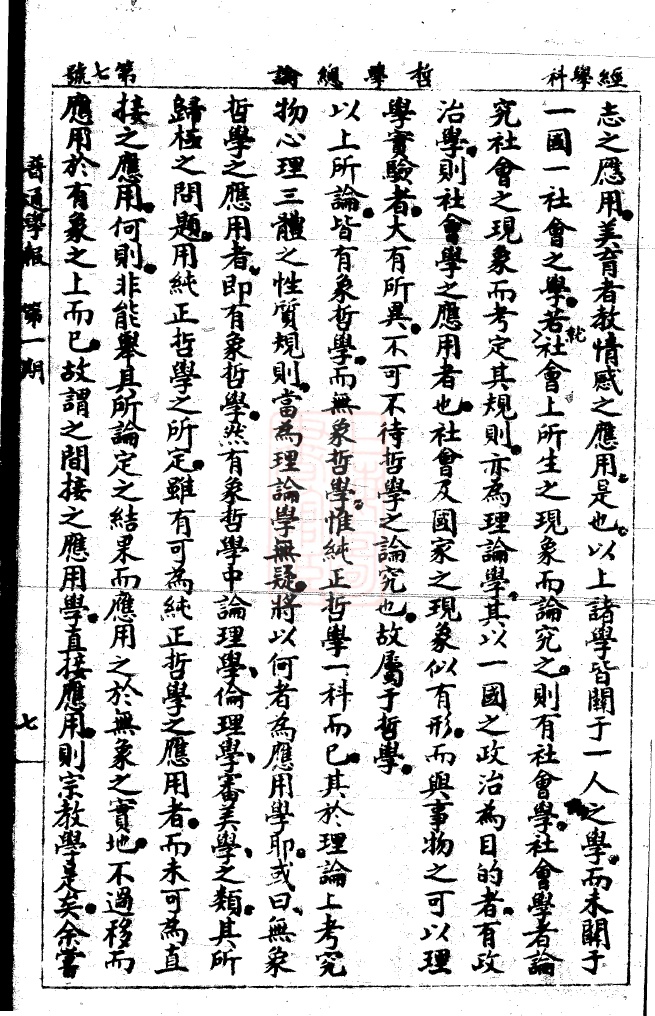 經學科
哲學總論
第七號
志之應用。美育者教情感之應用是也。以上諸學皆關于一人之學。而未關于
一國一社會之學。若就社會上所生之現象而論究之。則有社會學。社會學者論
究社會之現象而考定其規則。亦為理論學。其以一國之政治為目的者。有政
治學。則社會學之應用者也。社會及國家之現象似有形。而與事物之可以理
學實驗者。大有所異。不可不待哲學之論究也。故屬于哲學。
以上所論。皆有象哲學。而無象哲學。惟純正哲學一科而已。其於理論上考究
物心理三體之性質規則。當為理論學無疑。將以何者為應用學耶。或曰、無象
哲學之應用者。即有象哲學。然有象哲學中論理學、倫理學、審美學、之類。其所
歸極之問題。用純正哲學之所定。雖有可為純正哲學之應用者。而未可為直
接之應用。何則。非能舉其所論定之結果而應用之於無象之實地。不過移而
應用於有象之上而已。故謂之間接之應用學。直接應用。則宗教學是矣。余嘗
普通學報 第一期
七